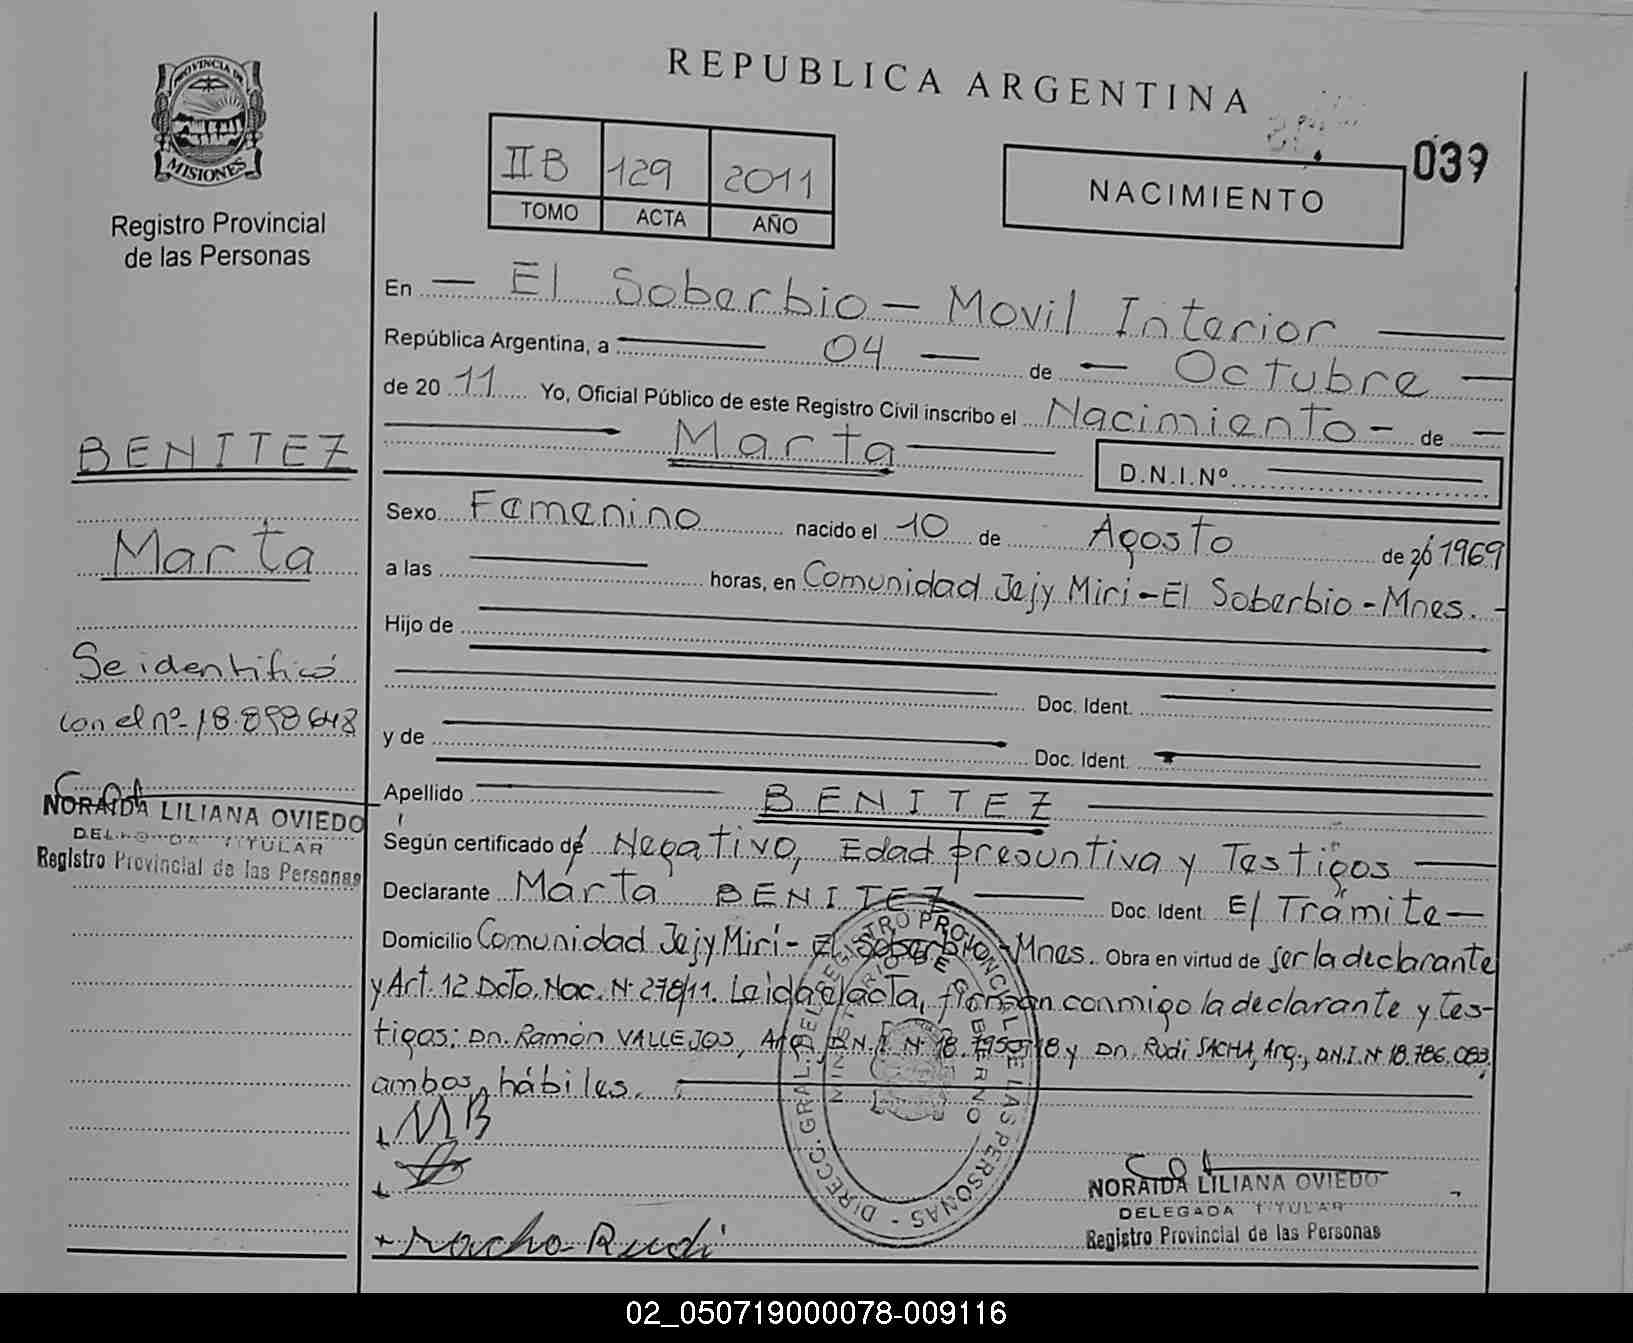 REPUBLICA ARGENTINA
PROVINCIA DE MISIONES
Registro Provincial
de las Personas
II B 129 2011
TOMO ACTA AÑO
NACIMIENTO
039
En — El Soberbio — Movil Interior —
República Argentina, a — 04 — de — Octubre —
de 20 11 Yo, Oficial Público de este Registro Civil inscribo el Nacimiento - de —
Marta — D.N.I.Nº —
Sexo Femenino nacido el 10 de Agosto de 20 1969
a las — horas, en Comunidad Jejy Miri - El Soberbio - Mnes. -
Hijo de —
Doc. Ident. —
y de — Doc. Ident. —
Apellido — BENITEZ —
Según certificado de Negativo, Edad presuntiva y Testigos —
Declarante Marta BENITEZ — Doc. Ident. E/ Trámite —
Domicilio Comunidad Jejy Miri - El Soberbio - Mnes. Obra en virtud de ser la declarante
y Art. 12 Dcto. Nac. Nº 278/11. Leida el acta, firman conmigo la declarante y tes-
tigos: Dn. Ramón VALLEJOS, Arg., D.N.I. Nº 18. y Dn. Rudi SACHA, Arg., D.N.I. Nº 18.786.083,
ambos hábiles. —
MB
Rudi
BENITEZ
Marta
Se identificó
con el nº 18.898648
NORAIDA LILIANA OVIEDO
DELEGADA TITULAR
Registro Provincial de las Personas
DIRECC. GRAL. DEL REGISTRO PROVINCIAL DE LAS PERSONAS -
MINISTERIO DE GOBIERNO
NORAIDA LILIANA OVIEDO
DELEGADA TITULAR
Registro Provincial de las Personas
02_050719000078-009116